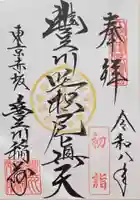 奉拝
令和八年
初詣
豊川吒枳尼眞天
東京赤坂
豊川稲荷